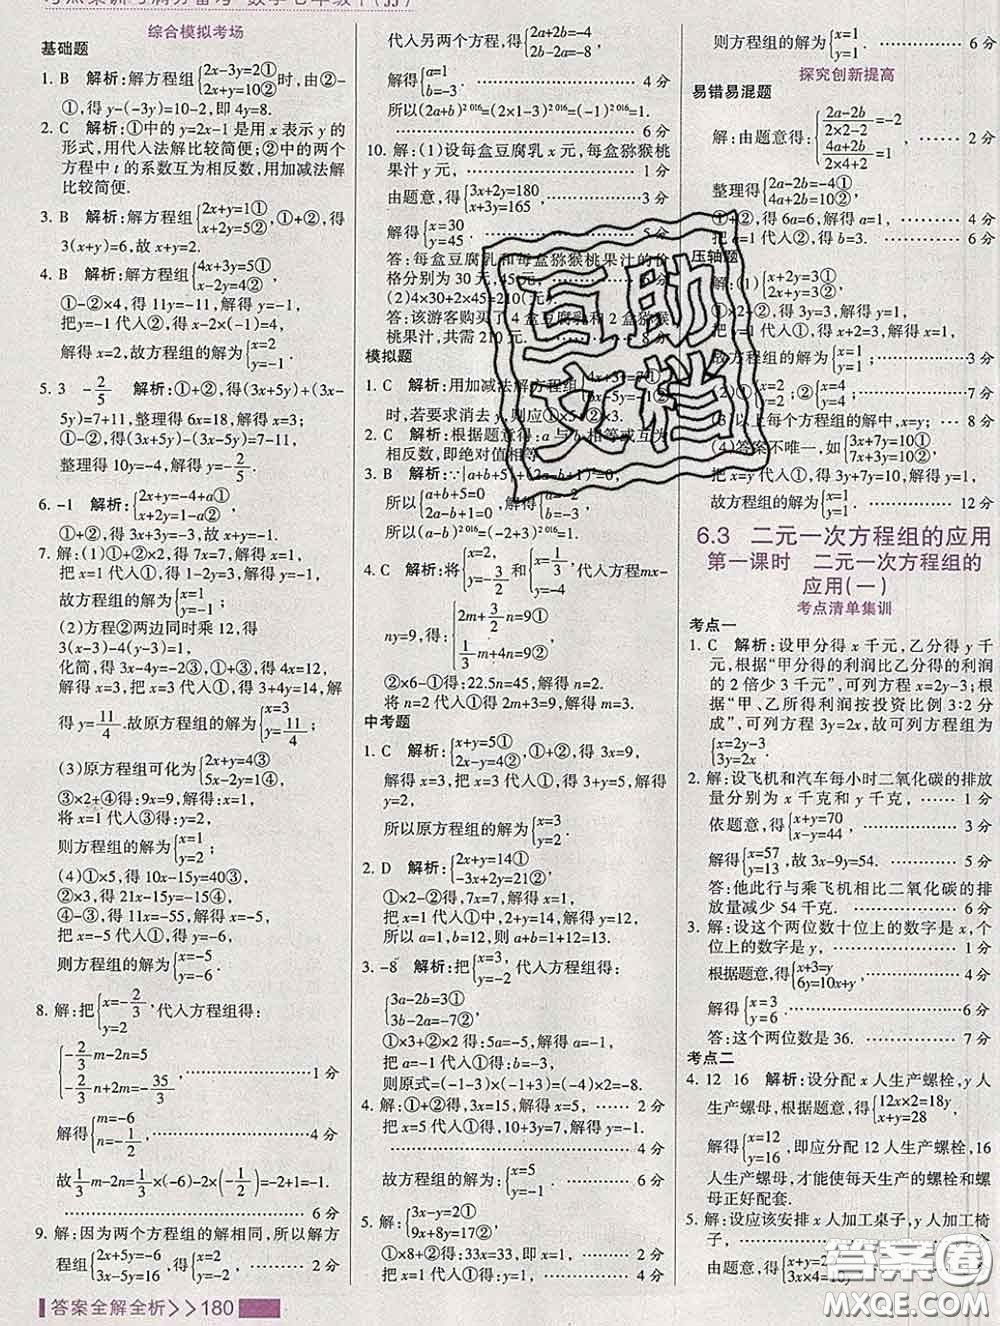 综合模拟考场
基础题
1. B 解析:解方程组{2x-3y=2① 2x+y=10②时,由②-
①,得 y-(-3y)=10-2,即 4y=8.
2. C 解析:①中的 y=2x-1 是用 x 表示 y 的
形式,用代入法解比较简便;②中的两个
方程中 t 的系数互为相反数,用加减法解
比较简便.
3. B 解析:解方程组{2x+y=1① x+2y=5②,①+②,得
3(x+y)=6,故 x+y=2.
4. B 解析:解方程组{4x+3y=5① x-2y=4②,
①-②×4,得 11y=-11,解得 y=-1.
把y=-1代入②,得 x-2×(-1)=4,
解得 x=2,故方程组的解为{x=2 y=-1.
5. 3 -2/5 解析:①+②,得(3x+5y)+(3x-
5y)=7+11,整理得 6x=18,解得 x=3;
①-②,得(3x+5y)-(3x-5y)=7-11,
整理得 10y=-4,解得 y=-2/5
6. -1 解析:{2x+y=-4+a① x+2y=1-a②,
①+②,得 3x+3y=-3,故 x+y=-1.
7. 解:(1)①+②×2,得 7x=7,解得 x=1.
把 x=1 代入①,得 3+2y=5,解得 y=1.
故方程组的解为{x=1 y=1;
(2)方程②两边同时乘 12,得
3(x-3)-4(y-3)=1,
化简,得 3x-4y=-2③,①+③,得 4x=12,
解得 x=3.把 x=3 代入①,得 3+4y=14,解
得 y=11/4.故原方程组的解为{x=3 y=11/4;
(3)原方程组可化为{x+2y=4③ 3x-2y=5④
③×2+④得:9x=9,解得 x=1.
将 x=1 代入③得:y=2.
则方程组的解为{x=1 y=2;
(4)①×5,得 10x-15y=40③,
②×3,得 21x-15y=-15④,
④-③,得 11x=-55,解得 x=-5,
把 x=-5 代入①,得 y=-6,
则方程组的解为{x=-5 y=-6.
8. 解:把{x=-2/3 y=2,代入方程组得:
{-2/3m-2n=5 -2/3n+2m=-35/3 1 分
解得{m=-6 n=-1/2 4 分
故1/3m-2n=1/3×(-6)-2×(-1/2)=-2+1=-1.
6 分
9. 解:因为两个方程组的解相同,所以解方
程组{2x+5y=-6 3x-5y=16,得{x=2 y=-2 2 分
代入另两个方程,得{2a+2b=-4 2b-2a=-8
解得{a=1 b=-3 4 分
所以(2a+b)²⁰¹⁶=(2×1-3)²⁰¹⁶=(-1)²⁰¹⁶=1.
6 分
10. 解:(1)设每盒豆腐乳 x 元,每盒猕猴桃
果汁 y 元, 1 分
由题意,得{3x+2y=180 x+3y=165 3 分
解得{x=30 y=45. 5 分
答:每盒豆腐乳和每盒猕猴桃果汁的价
格分别为 30 元,45 元.
(2)4×30+2×45=210(元),
答:该游客购买了 4 盒豆腐乳和 2 盒猕猴
桃果汁,共需 210 元.
模拟题
1. C 解析:用加减法解方程组
时,若要求消去 y,则应①×5+②×3.
2. C 解析:根据题意得:a 与 b 相等或互为
相反数,即绝对值相等.
3. B 解析:∵|a+b+5|+(2a-b+1)²=0,
所以{a+b+5=0 2a-b+1=0,解得{a=-2 b=-3
所以(b-a)²⁰¹⁶=(-2+3)²⁰¹⁶=1.
4. C 解析:将
和
代入方程 mx-
ny=9,得:{2m+3/2n=9① 1/3m+4n=9②
②×6-①得:22.5n=45,解得 n=2.
将 n=2 代入①得 2m+3=9,解得 m=3.
中考题
1. C 解析:{x+y=5① 2x-y=4②,①+②,得 3x=9,
解得 x=3,把 x=3 代入①,得 3+y=5,解得
y=2,
所以原方程组的解为{x=3 y=2.
2. D 解析:{2x+y=14① -3x+2y=7②
①×2-②得:7x=21,解得 x=1,
把 x=1 代入①中,2+y=14,解得 y=12,
所以 a=1,b=12,则 a+b=13,故选 D.
3. -8 解析:把{x=3, y=-2 代入方程组得:
{3a-2b=3① 3b-2a=-7②
①×3+②×2得:5a=-5,解得 a=-1,
把 a=-1 代入①得:b=-3,
则原式=(-1-3)×(-1+3)=-8
4. 解:①+②得,3x=15,解得 x=5, 2 分
把 x=5 代入①得,10+3y=7,解得 y=-1.
4 分
故方程组的解为{x=5 y=-1. 6 分
5. 解:{3x-y=2① 9x+8y=17②
①×8+②得:33x=33,即 x=1,
把 x=1 代入①得:y=1. 4 分
则方程组的解为{x=1 y=1. 6 分
探究创新提高
易错易混题
解:由题意得:{(2a-2b)/(2×2-2)=-2 (4a+2b)/(2×4+2)=1, 2 分
整理得{2a-2b=-4① 4a+2b=10②
①+②,得 6a=6,解得 a=1, 4 分
把 a=1 代入②,得 b=3. 6 分
压轴题
解:(1){x+2y=3① 2x+y=3②
①×2-②得 3y=3,解得 y=1,
把 y=1 代入①得,x+2=3,解得 x=1,
故方程组的解为{x=1 y=1; 3 分
(2){x=2 y=2;{x=4 y=4; 7 分
(3)以上每个方程组的解中,x=y; 8 分
(4)答案不唯一,如{3x+7y=10① 7x+3y=10②
把 x=y 代入①,得 3y+7y=10,解得 y=1,
故方程组的解为{x=1 y=1. 12 分
6.3 二元一次方程组的应用
第一课时 二元一次方程组的
应用(一)
考点清单集训
考点一
1. C 解析:设甲分得 x 千元,乙分得 y 千
元,根据“甲分得的利润比乙分得的利润
的 2 倍少 3 千元”,可列方程 x=2y-3;根
据“甲、乙所得利润按投资比例 3:2 分
成”,可列方程 3y=2x,故可列方程组为
{x=2y-3 3y=2x.
2. 解:设飞机和汽车每小时二氧化碳的排放
量分别为 x 千克和 y 千克, 1 分
依题意,得{x+y=70 x-y=44 3 分
解得{x=57 y=13,故 3x-9y=54. 5 分
答:他此行与乘飞机相比二氧化碳的排
放量减少 54 千克. 6 分
3. 解:设这个两位数十位上的数字是 x,个
位上的数字是 y, 1 分
根据题意,得{x+3=y 6y=10x+y 4 分
解得{x=3 y=6. 6 分
答:这个两位数是 36. 7 分
考点二
4. 12 16 解析:设分配 x 人生产螺栓,y 人
生产螺母,根据题意,得{12x×2=18y x+y=28
解得{x=12 y=16,即应分配 12 人生产螺栓,16
人生产螺母,才能使每天生产的螺栓和螺
母正好配套.
5. 解:设应该安排 x 人加工桌子,y 人加工椅
子,
由题意,得
答案全解全析>>180
互助
文档
答案圈
MXQE.COM